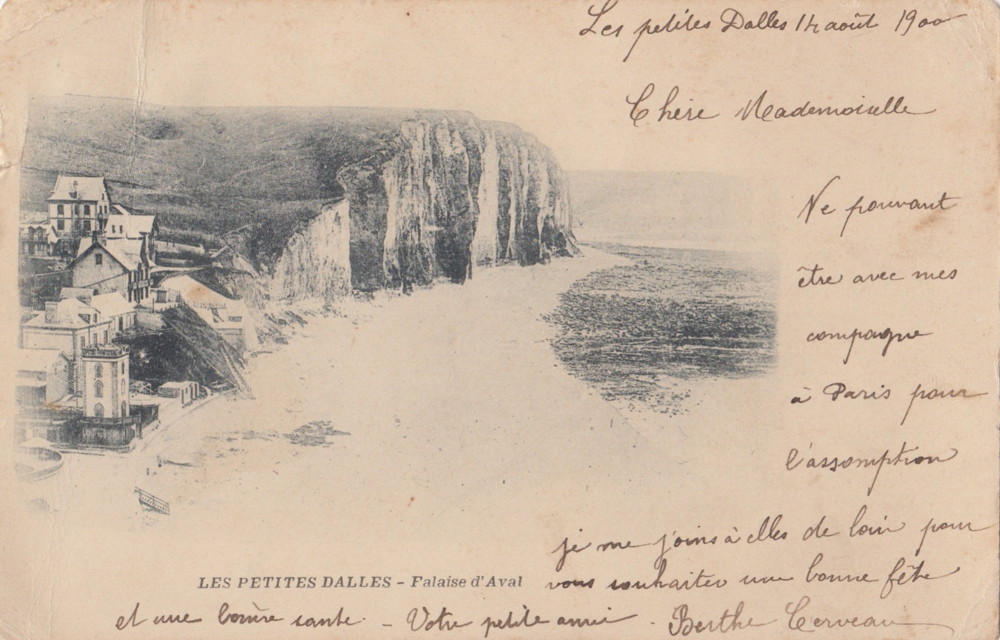 Les petites Dalles 14 août 1900
Chère Mademoiselle
Ne pouvant
être avec mes
compagne
à Paris pour
l'assomption
je me joins à elles de loin pour
vous souhaiter une bonne fête
et une bonne santé. - Votre petite amie. Berthe Cerveau
LES PETITES DALLES - Falaise d'Aval